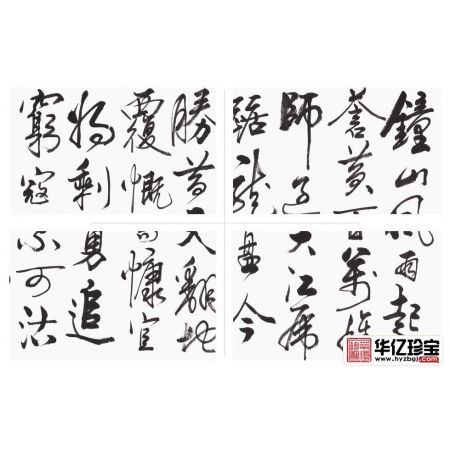 鐘山風雨起
蒼黃百萬雄
師過大江虎
踞龍盤今
勝昔天翻地
覆慨而慷宜
將剩勇追
窮寇不可沽
华亿珍宝
www.hyzbgj.com